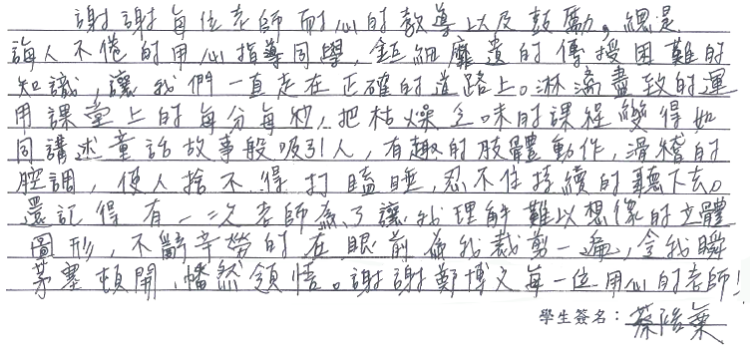 謝謝每位老師耐心的教導以及鼓勵，總是
誨人不倦的用心指導同學，鉅細靡遺的傳授困難的
知識，讓我們一直走在正確的道路上。淋漓盡致的運
用課堂上的每分每秒，把枯燥乏味的課程變得如
同講述童話故事般吸引人，有趣的肢體動作，滑稽的
腔調，使人捨不得打瞌睡，忍不住持續的聽下去。
還記得有一次老師為了讓我理解難以想像的立體
圖形，不辭辛勞的在眼前為我裁剪一遍，令我瞬
茅塞頓開，幡然領悟。謝謝鄭博文每一位用心的老師！
學生簽名：蔡